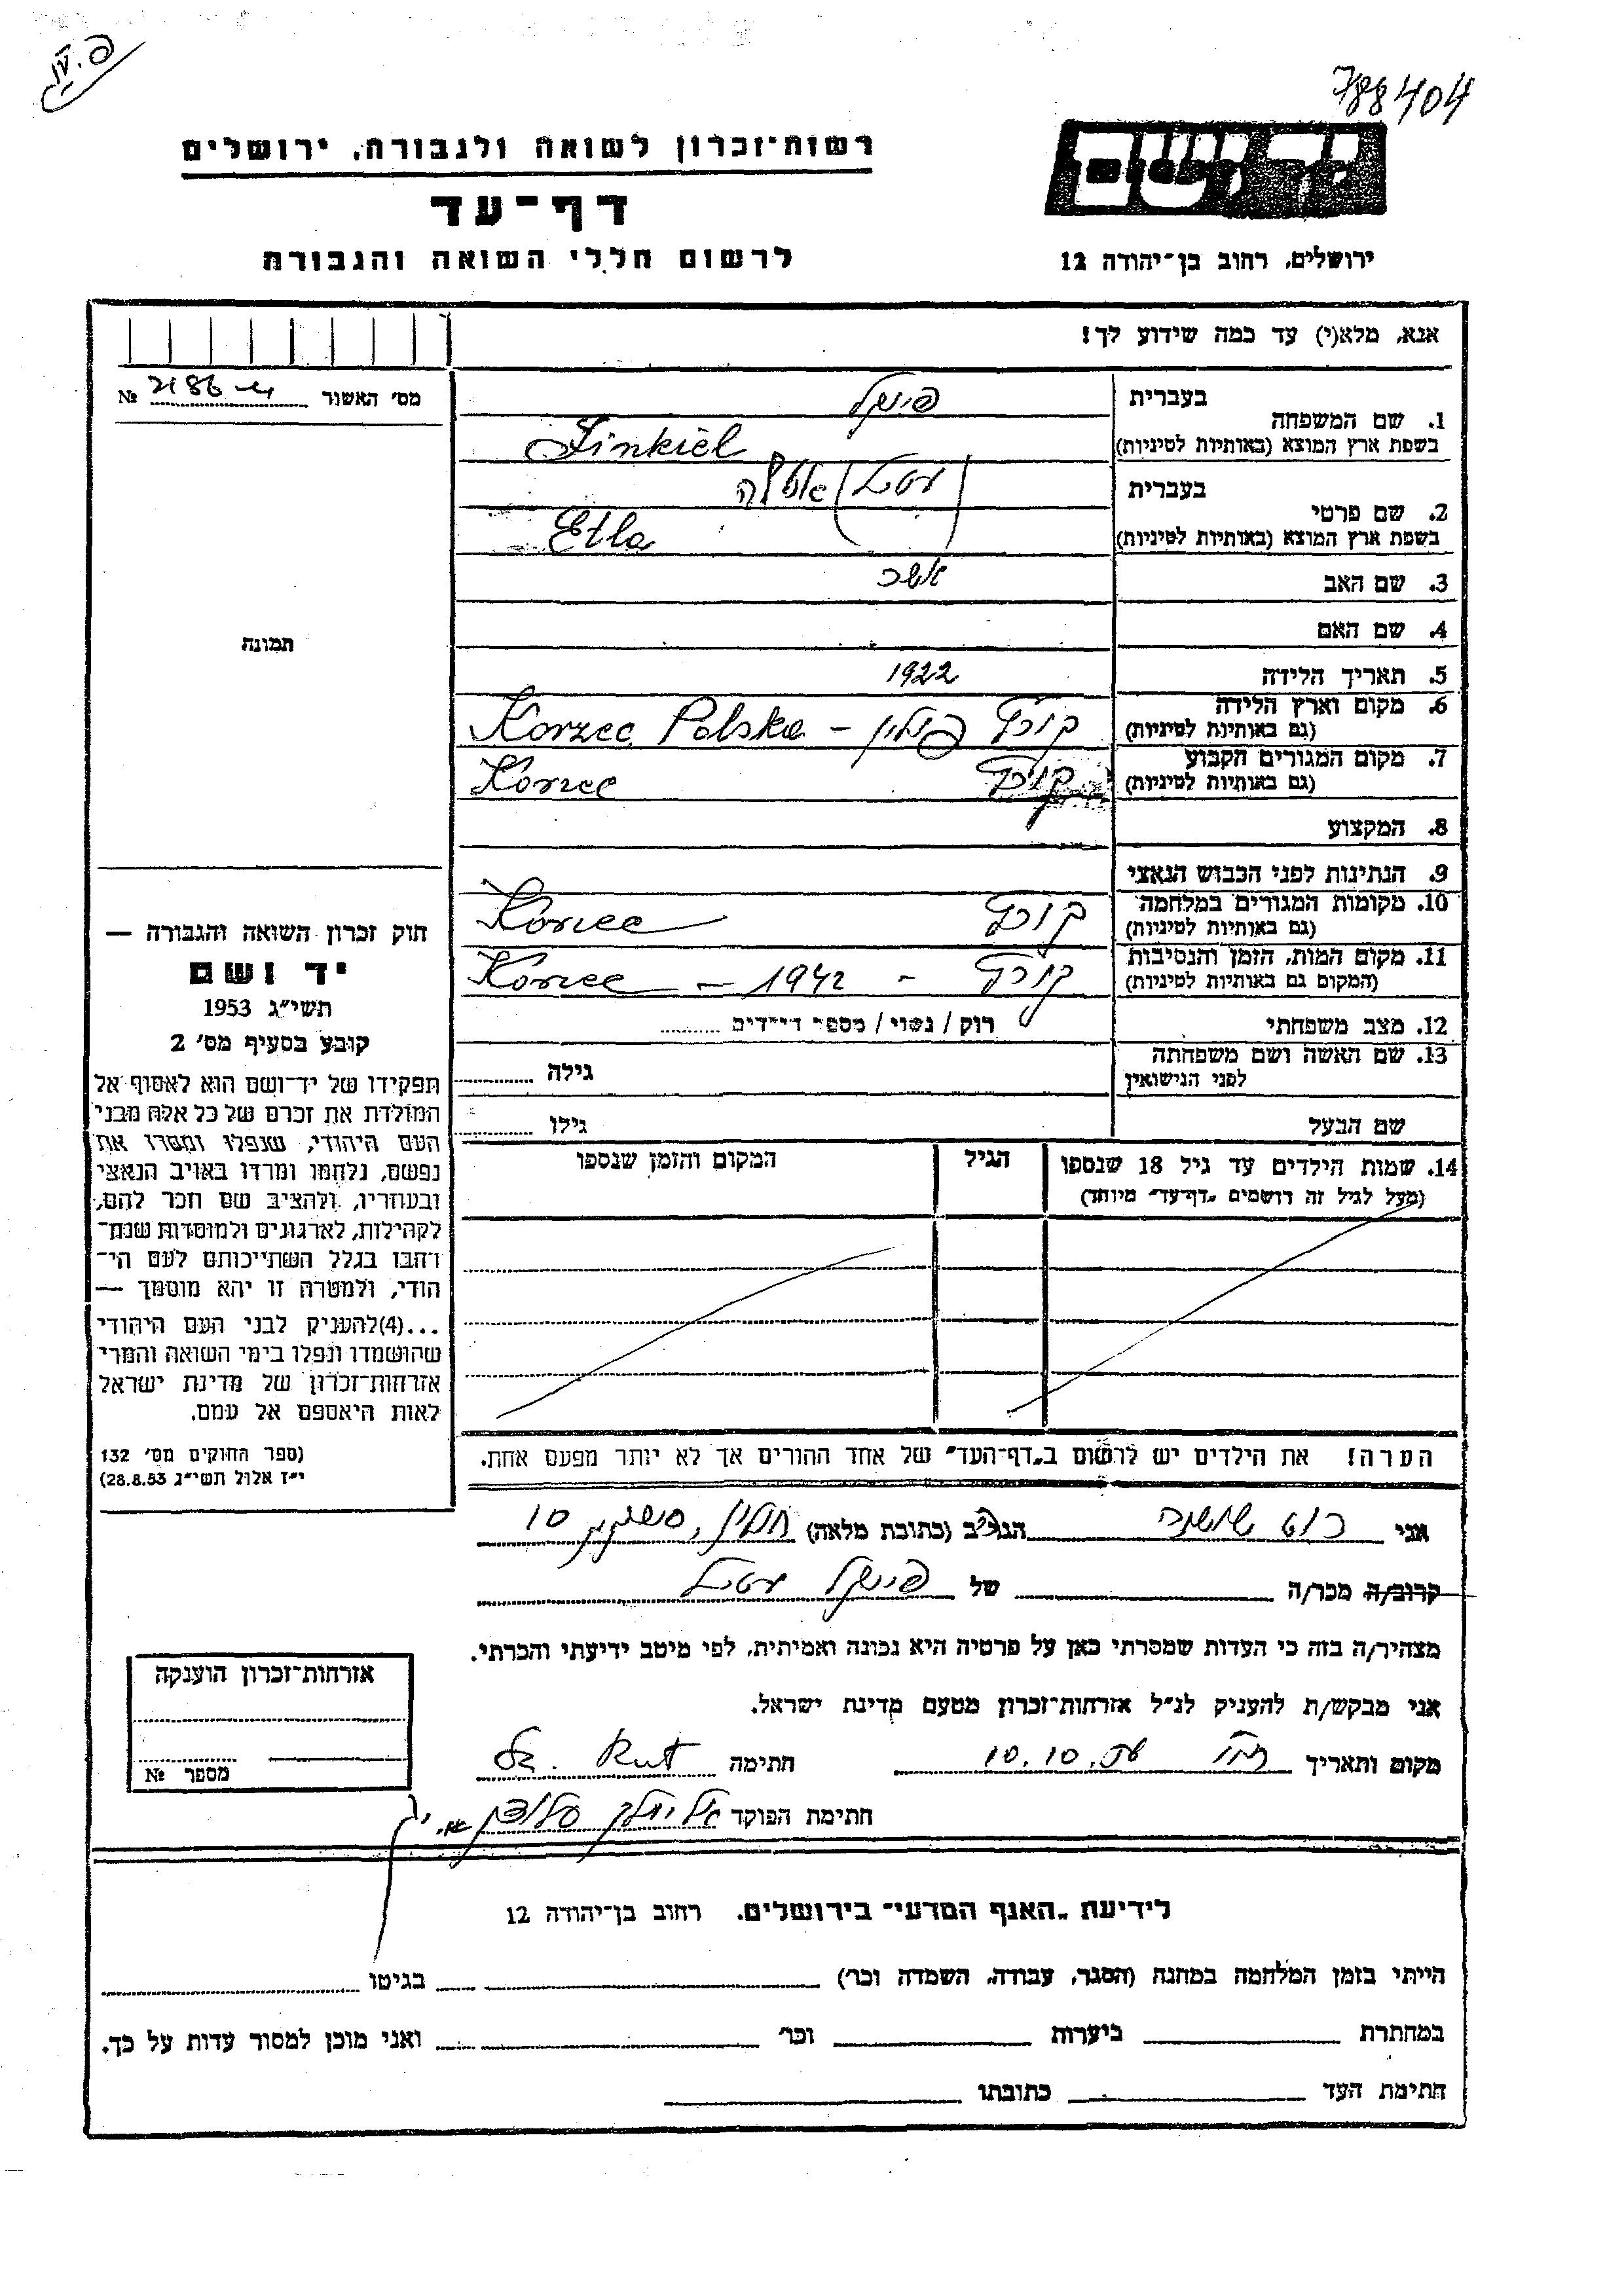 788404
רשות־זכרון לשואה ולגבורה, ירושלים
דף־עד
לרשום חללי השואה והגבורה
יד ושם
ירושלים, רחוב בן־יהודה 12
אנא, מלא(י) עד כמה שידוע לך!
מס' האשור № 2186
תמונה
1. שם המשפחה
בעברית
בשפת ארץ המוצא (באותיות לטיניות)
Finkiel
2. שם פרטי
בעברית
בשפת ארץ המוצא (באותיות לטיניות)
Etla
3. שם האב אשר
4. שם האם
5. תאריך הלידה 1922
6. מקום וארץ הלידה
(גם באותיות לטיניות)
קורץ פולין - Korzec Polska
7. מקום המגורים הקבוע
(גם באותיות לטיניות)
קורץ Korzec
8. המקצוע
9. הנתינות לפני הכבוש הנאצי
10. מקומות המגורים במלחמה
(גם באותיות לטיניות)
קורץ Korzec
11. מקום המות, הזמן והנסיבות
(המקום גם באותיות לטיניות)
קורץ - 1942 - Korzec
12. מצב משפחתי רוק / נשוי / מספר הילדים
13. שם האשה ושם משפחתה
לפני הנישואין
גילה
שם הבעל גילו
14. שמות הילדים עד גיל 18 שנספו
(מעל לגיל זה רושמים „דף־עד" מיוחד)
הגיל
המקום והזמן שנספו
הערה! את הילדים יש לרשום ב„דף־העד" של אחד ההורים אך לא יותר מפעם אחת.
חוק זכרון השואה והגבורה —
יד ושם
תשי"ג 1953
קובע בסעיף מס' 2
תפקידו של יד־ושם הוא לאסוף אל
המולדת את זכרם של כל אלה מבני
העם היהודי, שנפלו ומסרו את
נפשם, נלחמו ומרדו באויב הנאצי
ובעוזריו, ולהציב שם וזכר להם,
לקהילות, לארגונים ולמוסדות שנח־
רבו בגלל השתייכותם לעם הי־
הודי, ולמטרה זו יהא מוסמך —
...(4) להעניק לבני העם היהודי
שהושמדו ונפלו בימי השואה והמרי
אזרחות־זכרון של מדינת ישראל
לאות היאספם אל עמם.
(ספר החוקים מס' 132
י"ז אלול תשי"ג 28.8.53)
אני רוט שושנה הגר/ב (כתובת מלאה) חולון, 10
קרוב/ה מכר/ה של
מצהיר/ה בזה כי העדות שמסרתי כאן על פרטיה היא נכונה ואמיתית, לפי מיטב ידיעתי והכרתי.
אני מבקש/ת להעניק לנ"ל אזרחות־זכרון מטעם מדינת ישראל.
מקום ותאריך 10.10. חתימה Rut
חתימת הפוקד
אזרחות־זכרון הוענקה
מספר №
לידיעת „האגף המדעי" בירושלים. רחוב בן־יהודה 12
הייתי בזמן המלחמה במחנה (הסגר, עבודה, השמדה וכר') בגיטו
במחתרת ביערות וכר' ואני מוכן למסור עדות על כך.
חתימת העד כתובתו